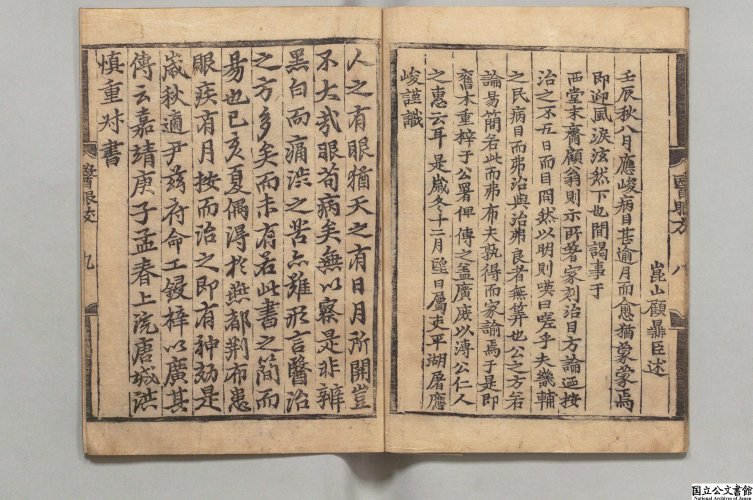 崑山顧鼎臣述
壬辰秋八月應峻病目甚逾月而愈猶蒙蒙焉
即迎風淚泫然下也間謁事于
西堂未齋顧翁則示所著家刻治目方論迺按
治之不五日而目閴然以明則嘆曰嗟乎夫畿輔
之民病目而弗治與治弗良者無筭也公之方若
論易簡若此而弗布夫孰得而家諭焉于是即
舊本重梓于公署俾傳之盖廣庶以溥公仁人
之惠云耳是歲冬十二月 日屬吏平湖屠應
峻謹識
醫眼方 八
人之有眼猶天之有日月所關豈
不大哉眼苟病矣無以察是非辨
黑白而痛澁之苦亦難形言醫治
之方多矣而未有若此書之簡而
昜也已亥夏偶得於燕都荆布患
眼疾有月按而治之即有神効是
歲秋適尹茲府命工鋟梓以廣其
傳云嘉靖庚子孟春上浣唐城洪
慎重对書
醫眼跋 九
国立公文書館
National Archives of Japan